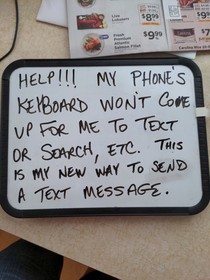 Live
Lobsters
$8.99
Fresh
Premium
Atlantic
Salmon Fillet
$9.99
HELP!!! MY PHONE'S
KEYBOARD WON'T COME
UP FOR ME TO TEXT
OR SEARCH, ETC. THIS
IS MY NEW WAY TO SEND
A TEXT MESSAGE.